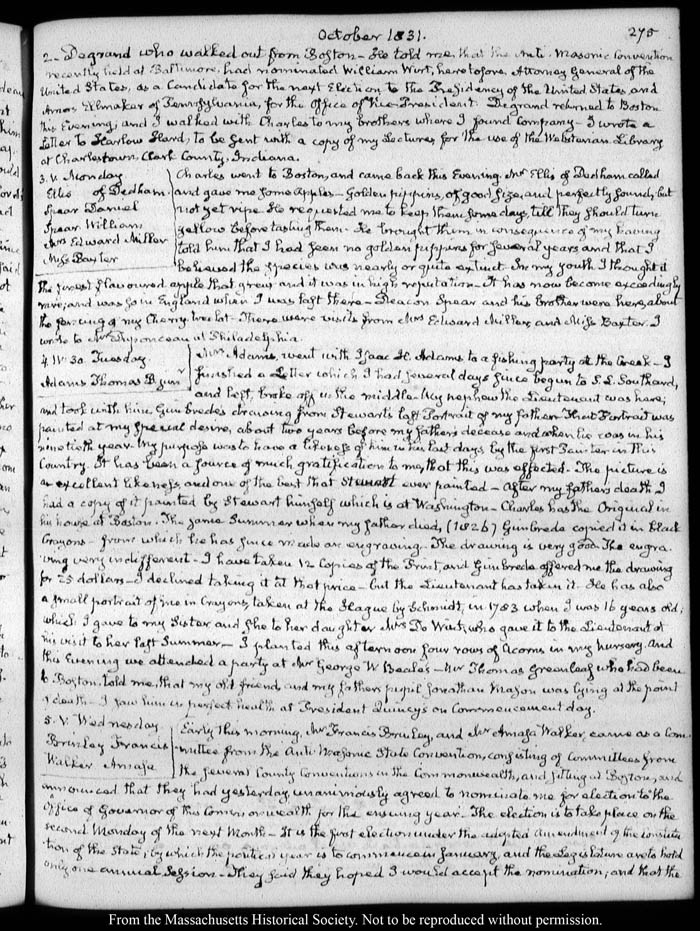 October 1831.
275
2. Degrand who walked out from Boston - He told me that the Anti-Masonic Convention
recently held at Baltimore, had nominated William Wirt, heretofore, Attorney General of the
United States, as a Candidate for the next Election to the Presidency of the United States, and
Amos Ellmaker of Pennsylvania, for the Office of Vice-President. Degrand returned to Boston
this Evening, and I walked with Charles to my brothers where I found Company - I wrote a
Letter to to be sent with a copy of my Lectures, for the use of the Websterian Library
at Charlestown, Clark County, Indiana.
3. V. Monday
Ellis of Dedham
Spear Daniel
Spear William
Mrs Edward Miller
Miss Baxter
Charles went to Boston, and came back this Evening. Mr Ellis of Dedham called
and gave me some Apples - Golden pippins, of good size, and perfectly sound, but
not yet ripe. He requested me to keep them some days, till they should turn
yellow before tasting them. He brought them in consequence of my having
told him that I had seen no golden pippins for several years and that I
believed the species was nearly or quite extinct. In my youth I thought it
the finest flavoured apple that grew and it was in high reputation - It has now become exceedingly
rare, and was so in England when I was last there - Deacon Spear and his brother were here, about
the of my Cherry. - There were visits from Mrs Edward Miller, and Miss Baxter. I
wrote to Mr Duponceau at Philadelphia.
4. 30 Tuesday.
Adams Thomas B. junr
Mrs Adams, went with Isaac H. Adams to a fishing party at the Creek - I
finished a Letter which I had several days since begun to S. L. Southard,
and left, broke off in the middle. My nephew the Lieutenant was here,
and took with him Gimbrede's drawing from Stewart's last Portrait of my father. That Portrait was
painted at my special desire, about two years before my father's decease and when he was in his
ninetieth year. My purpose was to have a likeness of him in his last days by the first Painter in this
Country. It has been a source of much gratification to me, that this was effected. The picture is
an excellent likeness, and one of the best that Stewart ever painted - After my father's death I
had a copy of it painted by Stewart himself which is at Washington - Charles has the Original in
his house at Boston. The same Summer when my father died, (1826) Gimbrede copied it in black
Crayons - from which he has since made an engraving. The drawing is very good. The engra-
ving very indifferent - I have taken 12 Copies of the Print, and Gimbrede offered me the drawing
for 25 dollars - I declined taking it at that price - but the Lieutenant has taken it. He has also
a small portrait of me in Crayons, taken at the Hague by Schmidt, in 1783 when I was 16 years old;
which I gave to my Sister and She to her daughter Mrs De Wint, who gave it to the Lieutenant at
his visit to her last Summer - I planted this afternoon four rows of Acorns in my nursery. And
this Evening we attended a party at Mr George W Beale's - Mr Thomas Greenleaf who had been
to Boston, told me, that my old friend, and my father's pupil Jonathan Mason was lying at the point
of death - I saw him in perfect health at President Quincy's on Commencement day.
5. V. Wednesday
Brinley Francis
Walker Amasa
Early this morning, Mr Francis Brinley, and Mr Amasa Walker, came as a Com-
mittee from the Anti-Masonic State Convention, consisting of Committees from
the several County Conventions in the Commonwealth, and sitting at Boston, and
announced that they had yesterday, unanimously agreed to nominate me for election to the
Office of Governor of this Commonwealth for the ensuing year. The election is to take place on the
second Monday of the next Month - It is the first election under the adopted amendment of the Constitu-
tion of the State, by which the political year is to commence in January, and the Legislature are to hold
only one annual Session - They said they hoped I would accept the nomination; and that the
From the Massachusetts Historical Society. Not to be reproduced without permission.